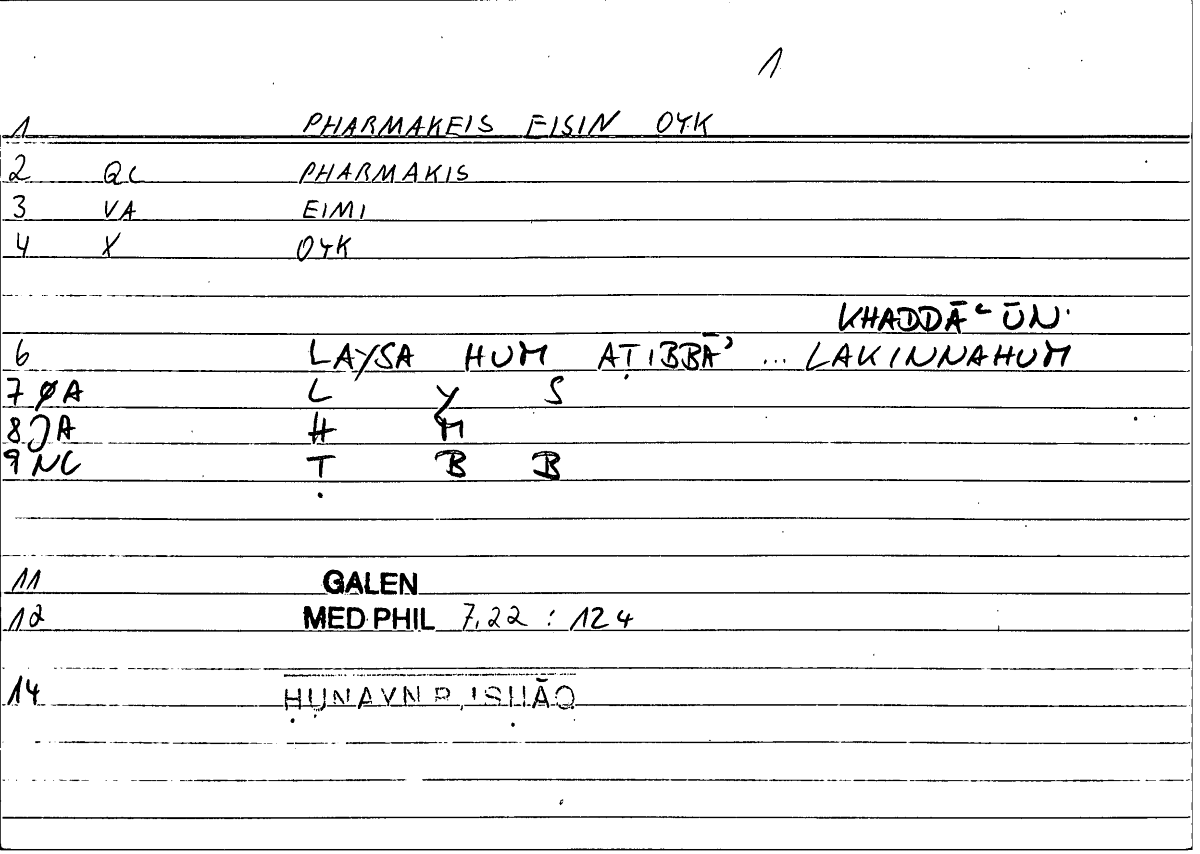 1
1 PHARMAKEIS EISIN OYK
2 QC PHARMAKIS
3 VA EIMI
4 X OYK
KHADDĀʿŪN.
6 LAYSA HUM AṬIBBĀʾ ... LAKINNAHUM
7 ØA L Y S
8 JA H M
9 NC Ṭ B B
11 GALEN
12 MED.PHIL 7,22 : 124
14 ḤUNAYN B. ISḤĀQ